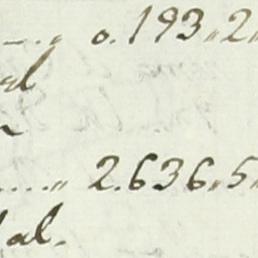 —.„ 0.193„2„
al
2.636„5„
al.